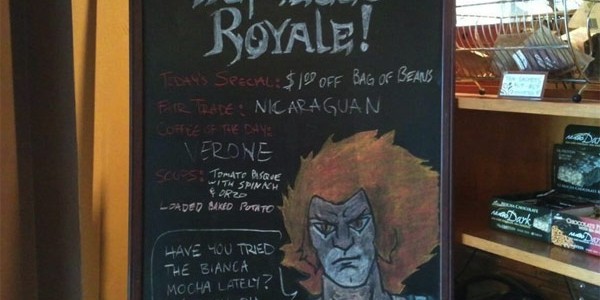 ROYALE!
TODAY'S SPECIAL: $1.00 OFF BAG OF BEANS
FAIR TRADE: NICARAGUAN
COFFEE OF THE DAY:
VERONE
SOUPS: TOMATO BISQUE
WITH SPINACH
& ORZO
LOADED BAKED POTATO
HAVE YOU TRIED
THE BIANCA
MOCHA LATELY?
Dark
Dark
Dark
CHOCOLATE